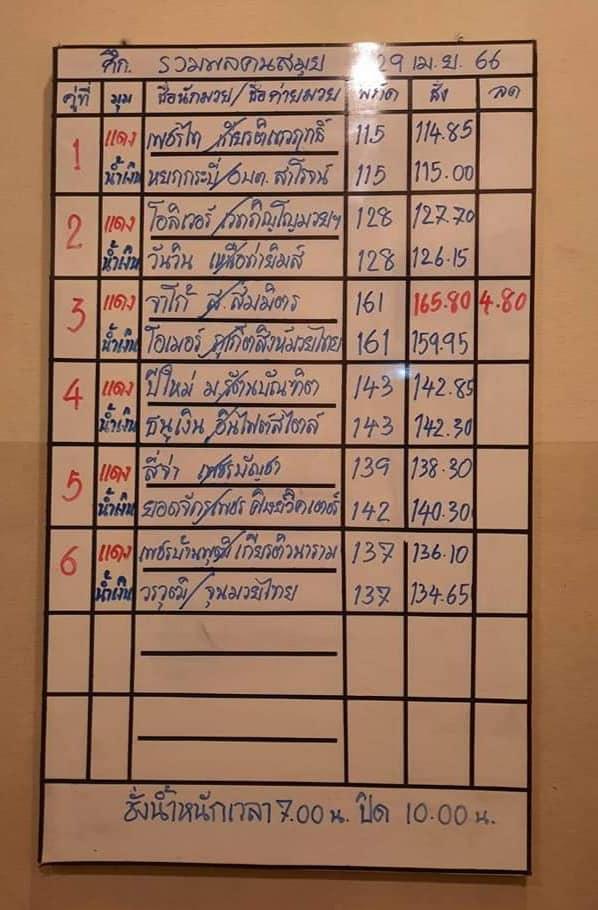 ศึก. รวมพลคนสมุย 29 เม.ย. 66
คู่ที่ มุม ชื่อนักมวย/ชื่อค่ายมวย พิกัด ชั่ง ลด
1 แดง เพชรไท / 115 114.85
น้ำเงิน หยกกระบี่/อบต. สาโรจน์ 115 115.00
2 แดง โอลิเวอร์ / 128 127.70
น้ำเงิน วันวิน เหนือค่ายิมส์ 128 126.15
3 แดง จาโก้ ส. สมมิตร 161 165.80 4.80
น้ำเงิน โอเมอร์ ภูเก็ตสิงห์มวยไทย 161 159.95
4 แดง ปีใหม่ 143 142.85
น้ำเงิน ธนูเงิน 143 142.30
5 แดง สีจ๋า เพชรบัญชา 139 138.30
น้ำเงิน 142 140.30
6 แดง เพชรบ้านพุฒ/เกียรติวนาราม 137 136.10
น้ำเงิน วรวุฒิ/จุนมวยไทย 137 134.65
ชั่งน้ำหนักเวลา 7.00 น. ปิด 10.00 น.